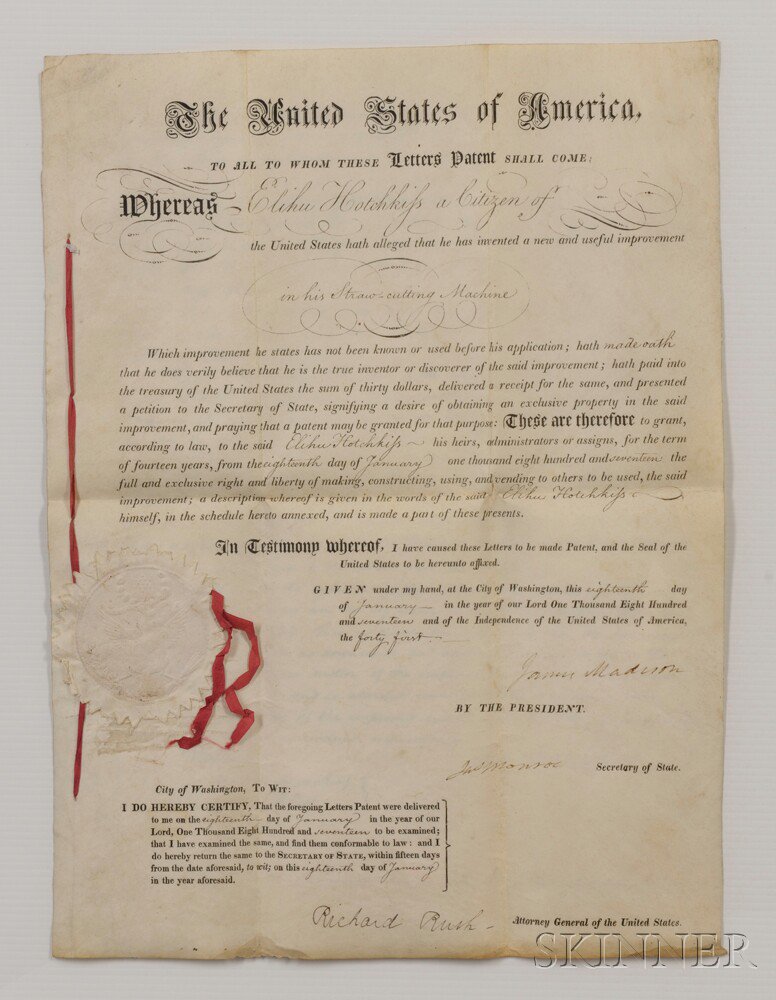 The United States of America,
TO ALL TO WHOM THESE Letters Patent SHALL COME:
Whereas Elihu Hotchkiss a Citizen of
the United States hath alleged that he has invented a new and useful improvement
in his Straw-cutting Machine
Which improvement he states has not been known or used before his application; hath made oath
that he does verily believe that he is the true inventor or discoverer of the said improvement; hath paid into
the treasury of the United States the sum of thirty dollars, delivered a receipt for the same, and presented
a petition to the Secretary of State, signifying a desire of obtaining an exclusive property in the said
improvement, and praying that a patent may be granted for that purpose: These are therefore to grant,
according to law, to the said Elihu Hotchkiss his heirs, administrators or assigns, for the term
of fourteen years, from the eighteenth day of January one thousand eight hundred and seventeen the
full and exclusive right and liberty of making, constructing, using, and vending to others to be used, the said
improvement; a description whereof is given in the words of the said Elihu Hotchkiss
himself, in the schedule hereto annexed, and is made a part of these presents.
In Testimony whereof, I have caused these Letters to be made Patent, and the Seal of the
United States to be hereunto affixed.
GIVEN under my hand, at the City of Washington, this eighteenth day
of January in the year of our Lord One Thousand Eight Hundred
and seventeen and of the Independence of the United States of America,
the forty first.
James Madison
BY THE PRESIDENT.
Jas Monroe Secretary of State.
City of Washington, To Wit:
I DO HEREBY CERTIFY, That the foregoing Letters Patent were delivered
to me on the eighteenth day of January in the year of our
Lord, One Thousand Eight Hundred and seventeen to be examined;
that I have examined the same, and find them conformable to law: and I
do hereby return the same to the Secretary of State, within fifteen days
from the date aforesaid, to wit; on this eighteenth day of January
in the year aforesaid.
Richard Rush Attorney General of the United States.
SKINNER